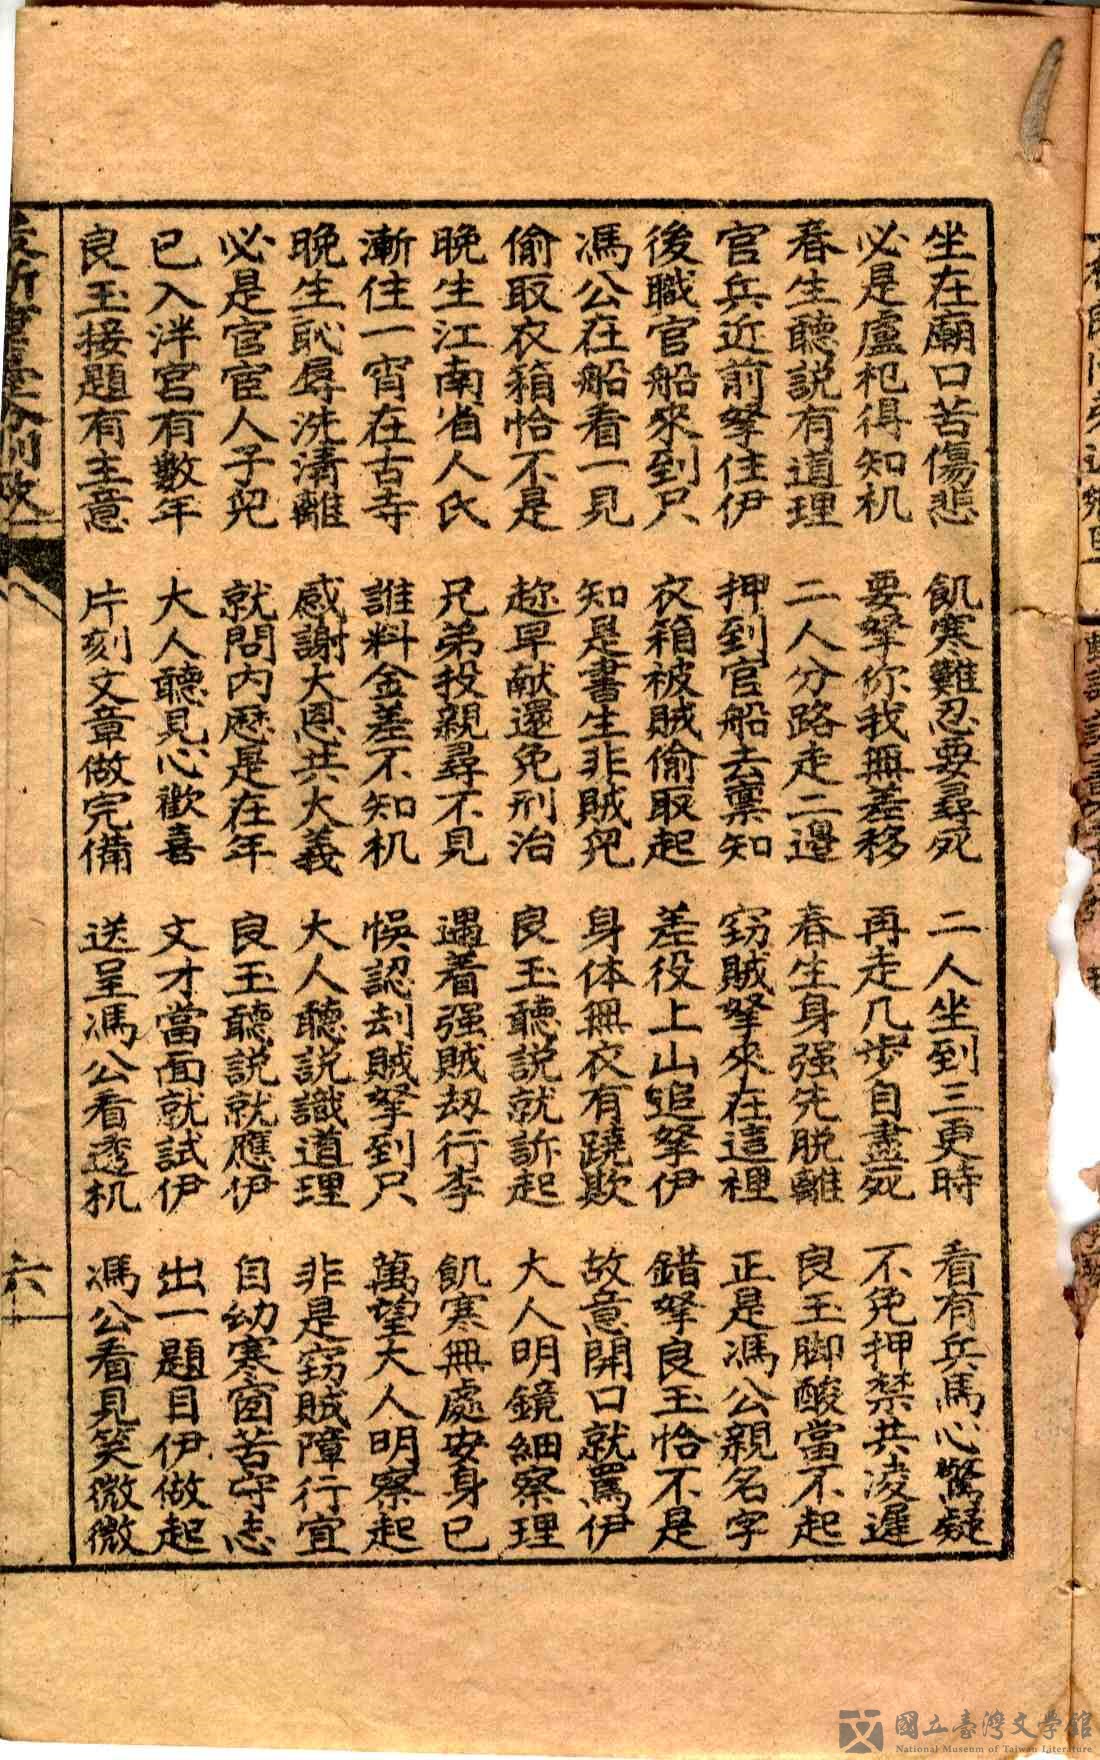 坐在廟口苦傷悲 飢寒難忍要尋死 二人坐到三更時 看有兵馬心驚疑
必是盧杞得知机 要拏你我無差移 再走几步自盡死 不免押禁共凌遲
春生聽説有道理 二人分路走二邊 春生身强先脱離 良玉脚酸當不起
官兵近前拏住伊 押到官船去稟知 窃賊拏來在這裡 正是馮公親名字
後職官船來到尺 衣箱被賊偷取起 差役上山追拏伊 錯拏良玉恰不是
馮公在船看一見 知是書生非賊兒 身体無衣有蹺欺 故意開口就罵伊
偷取衣箱恰不是 趂早献還免刑治 良玉聽説就訴起 大人明鏡細察理
晚生江南省人氏 兄弟投親尋不見 遇着强賊刼行李 飢寒無處安身己
漸住一宵在古寺 誰料金差不知机 悞認刦賊拏到尺 萬望大人明察起
晚生恥辱洗清離 感謝大恩共大義 大人聽説識道理 非是窃賊障行宜
必是官宦人子兒 就問内歷是在年 良玉聽説就應伊 自幼寒窗苦守志
已入泮宮有數年 大人聽見心歡喜 文才當面就試伊 出一題目伊做起
良玉接題有主意 片刻文章做完備 送呈馮公看透机 馮公看見笑微微
六
國立臺灣文學館
National Museum of Taiwan Literature